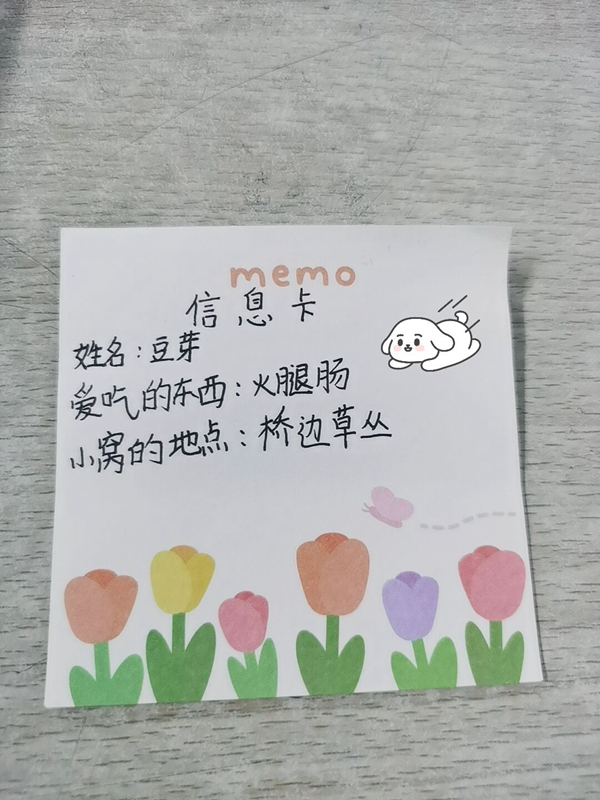 memo
信息卡
姓名：豆芽
爱吃的东西：火腿肠
小窝的地点：桥边草丛